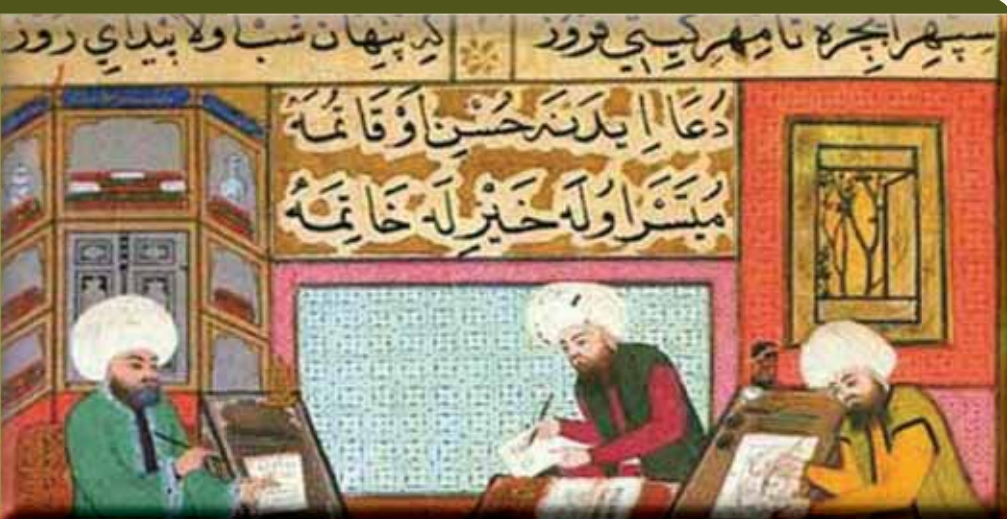 سپهرا بچره تا مهر گیتی فروز که پنهان شب اولا پیدای روز
دُعَا اِیدَنَهٔ حُسْنِ اَوْقَاتُمَهٔ
مُیَسَّر اُولَه خَیْرِلَه خَاتِمَهٔ